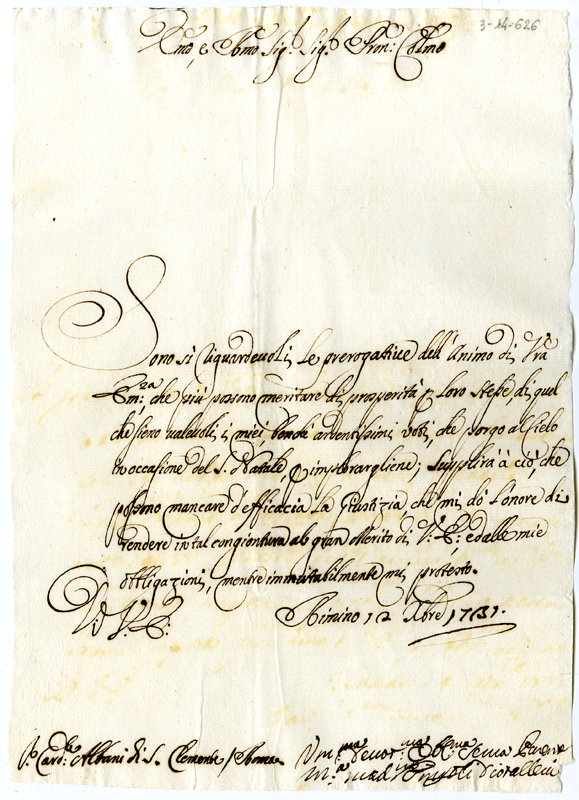 3-14-626
Emo, e Rmo Sig.r Sig.r Pron: Colmo
Sono sì riguardevoli le prerogative dell'Animo di Vra
Em:za che più possono meritare di prosperità p loro stesse di quel
che sieno valevoli i miei, benchè ardentissimi voti, che porgo al Cielo
in occasione del S. Natale, p implorargliene; Supplirà à ciò, che
possino mancare d'efficacia la Giustizia, che mi dò l'onore di
rendere in tal congiontura al gran Merito di V: E: ed alle mie
obbligazioni, mentre immutabilmente mi protesto.
D: V: E:
Rimino 12 Xbre 1731.
Card.le Albani di S. Clemente / Roma
Um:ma Devot:ma Obb:ma Serva
M:a